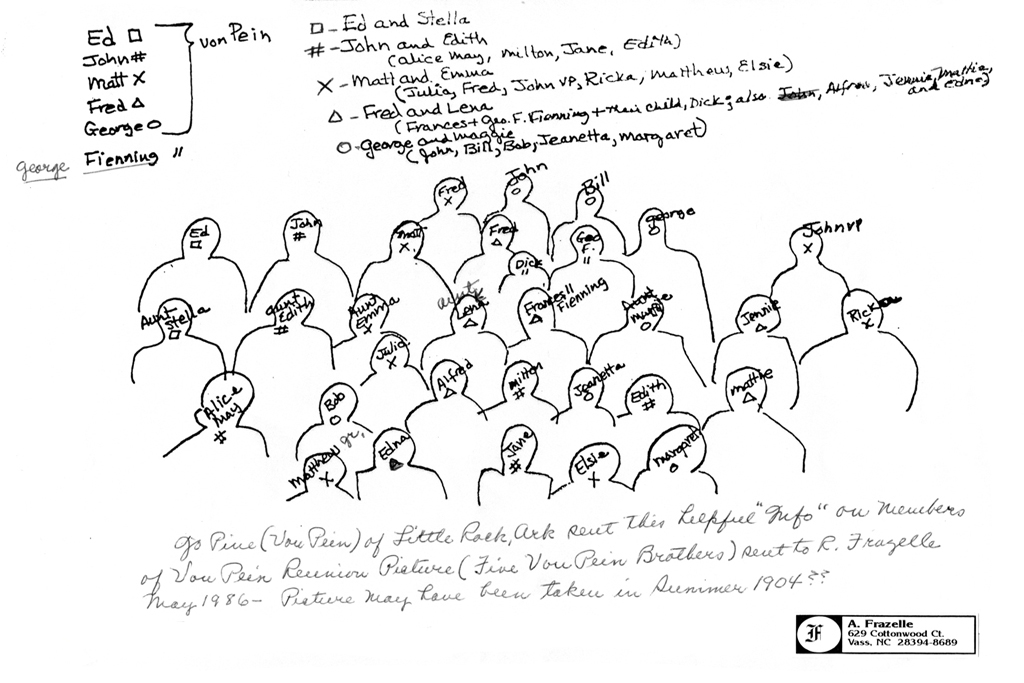 Ed □
John #
Matt X
Fred △
George O
von Pein
George Fienning "
□ - Ed and Stella
# - John and Edith
(Alice May, Milton, Jane, Edith)
X - Matt and Emma
(Julia, Fred, John VP, Ricka, Matthew, Elsie)
△ - Fred and Lena
(Frances + Geo. F. Fienning + their child, Dick; also John, Alfred, Jennie, Mattie, and Edna)
O - George and Maggie
(John, Bill, Bob, Jeanetta, Margaret)
Fred X
John O
Bill O
Ed □
John #
Matt X.
Fred △
Geo F. "
George O
John VP X
Dick "
Aunt Stella □
Aunt Edith #
Aunt Emma X
Aunt Lena △
Frances " Fienning △
Aunt O
Jennie △
Ricka X
Julia X
Alice May #
Bob O
Alfred △
Milton #
Jeanetta O
Edith #
Mattie △
Matthew Jr. X
Edna ▲
Jane #
Elsie X
Margaret O
Jo Pine (Von Pein) of Little Rock, Ark sent this helpful "Info" on Members
of Von Pein Reunion Picture (Five Von Pein Brothers) sent to R. Frazelle
May 1986 - Picture May have been taken in Summer 1904??
F
A. Frazelle
629 Cottonwood Ct.
Vass, NC 28394-8689